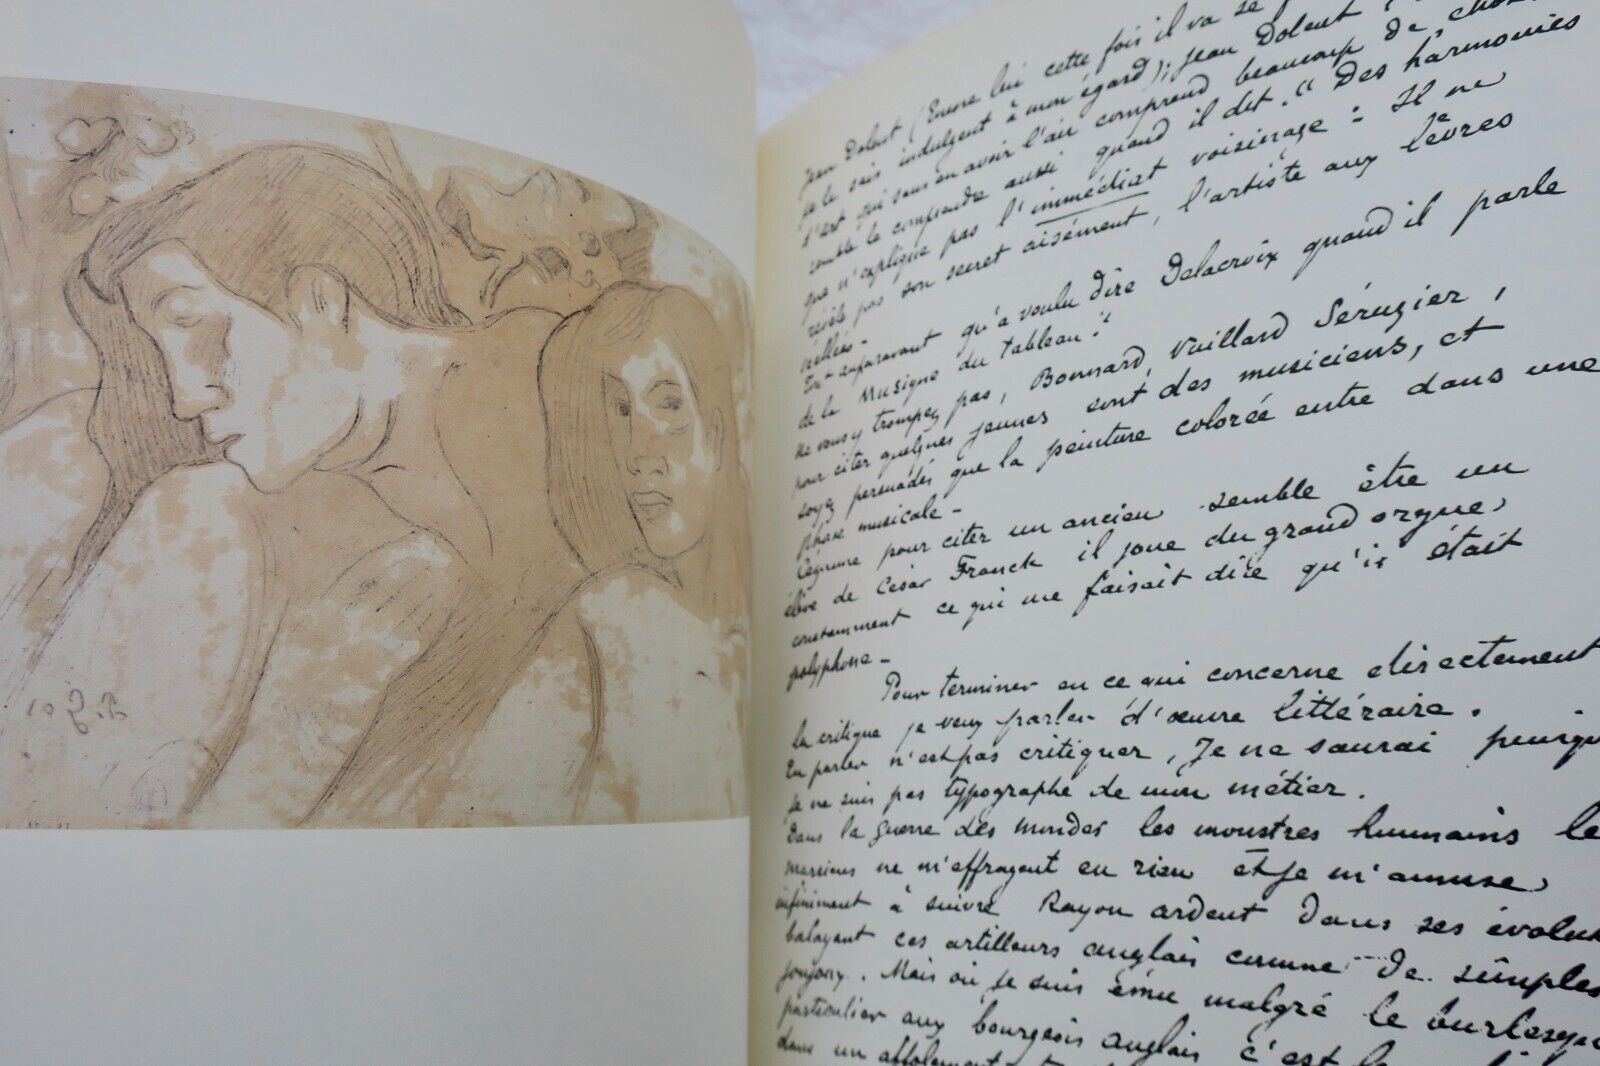 Jean Dolent (Encore lui cette fois il va se
je le sais indulgent à mon égard); Jean Dolent
d'art qui sans en avoir l'air comprend beaucoup de
semble le comprendre aussi quand il dit. "Des harmonies
que n'explique pas l'immédiat voisinage". Il ne
révèle pas son secret aisément, l'artiste aux lèvres
scellées.
auparavant qu'a voulu dire Delacroix quand il parle
de la Musique du tableau."
Ne vous y trompez pas, Bonnard, Vuillard Sérusier,
pour citer quelques jeunes sont des musiciens, et
soyez persuadés que la peinture colorée entre dans une
phase musicale.
Cézanne pour citer un ancien semble être un
élève de César Franck il joue du grand orgue,
constamment ce qui me faisait dire qu'il était
polyphone.
Pour terminer en ce qui concerne directement
la critique je veux parler d'œuvre littéraire.
En parler n'est pas critiquer, Je ne saurai
je ne suis pas typographe de mon métier.
Dans la guerre des mondes les monstres humains
ne m'effrayent en rien et je m'amuse
infiniment à suivre Rayon ardent dans ses
balayant ces artilleurs anglais comme de simples
joujoux. Mais où je suis ému malgré le
particulier aux bourgeois anglais c'est
dans un affolement